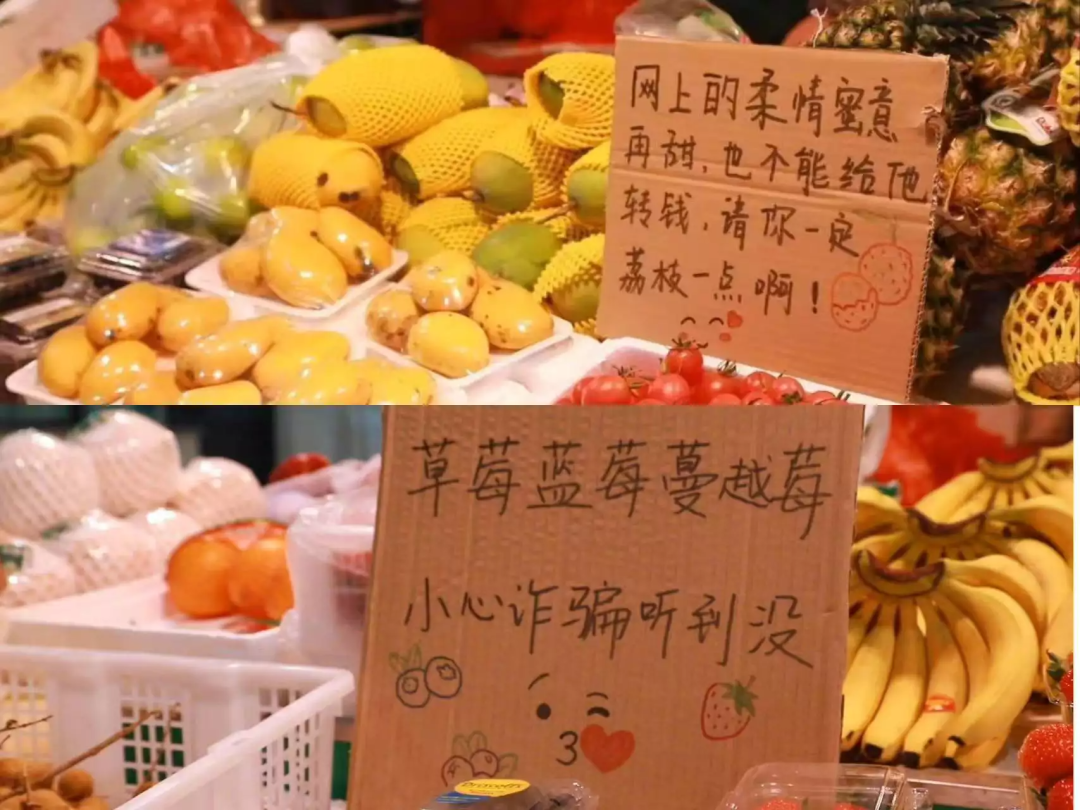 网上的柔情蜜意
再甜,也不能给他
转钱,请你一定
荔枝一点啊!
草莓蓝莓蔓越莓
小心诈骗听到没